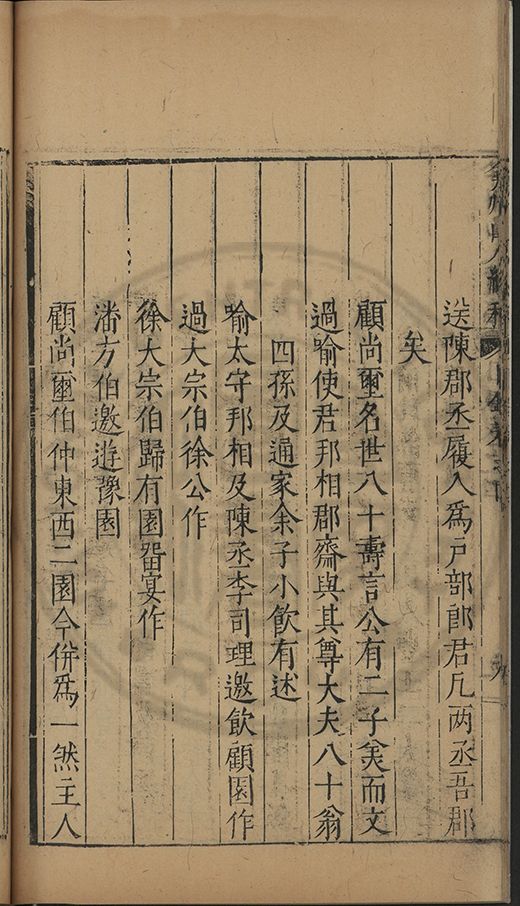 送陳郡丞履入為戶部郎君凡两丞吾郡
矣
顧尚璽名世八十壽言公有二子美而文
過喻使君邦相郡齋與其尊大夫八十翁
四孫及通家余子小飲有述
喻太守邦相及陳丞李司理邀飲顧園作
過大宗伯徐公作
徐大宗伯歸有園畱宴作
潘方伯邀遊豫園
顧尚璽伯仲東西二園今併為一然主人